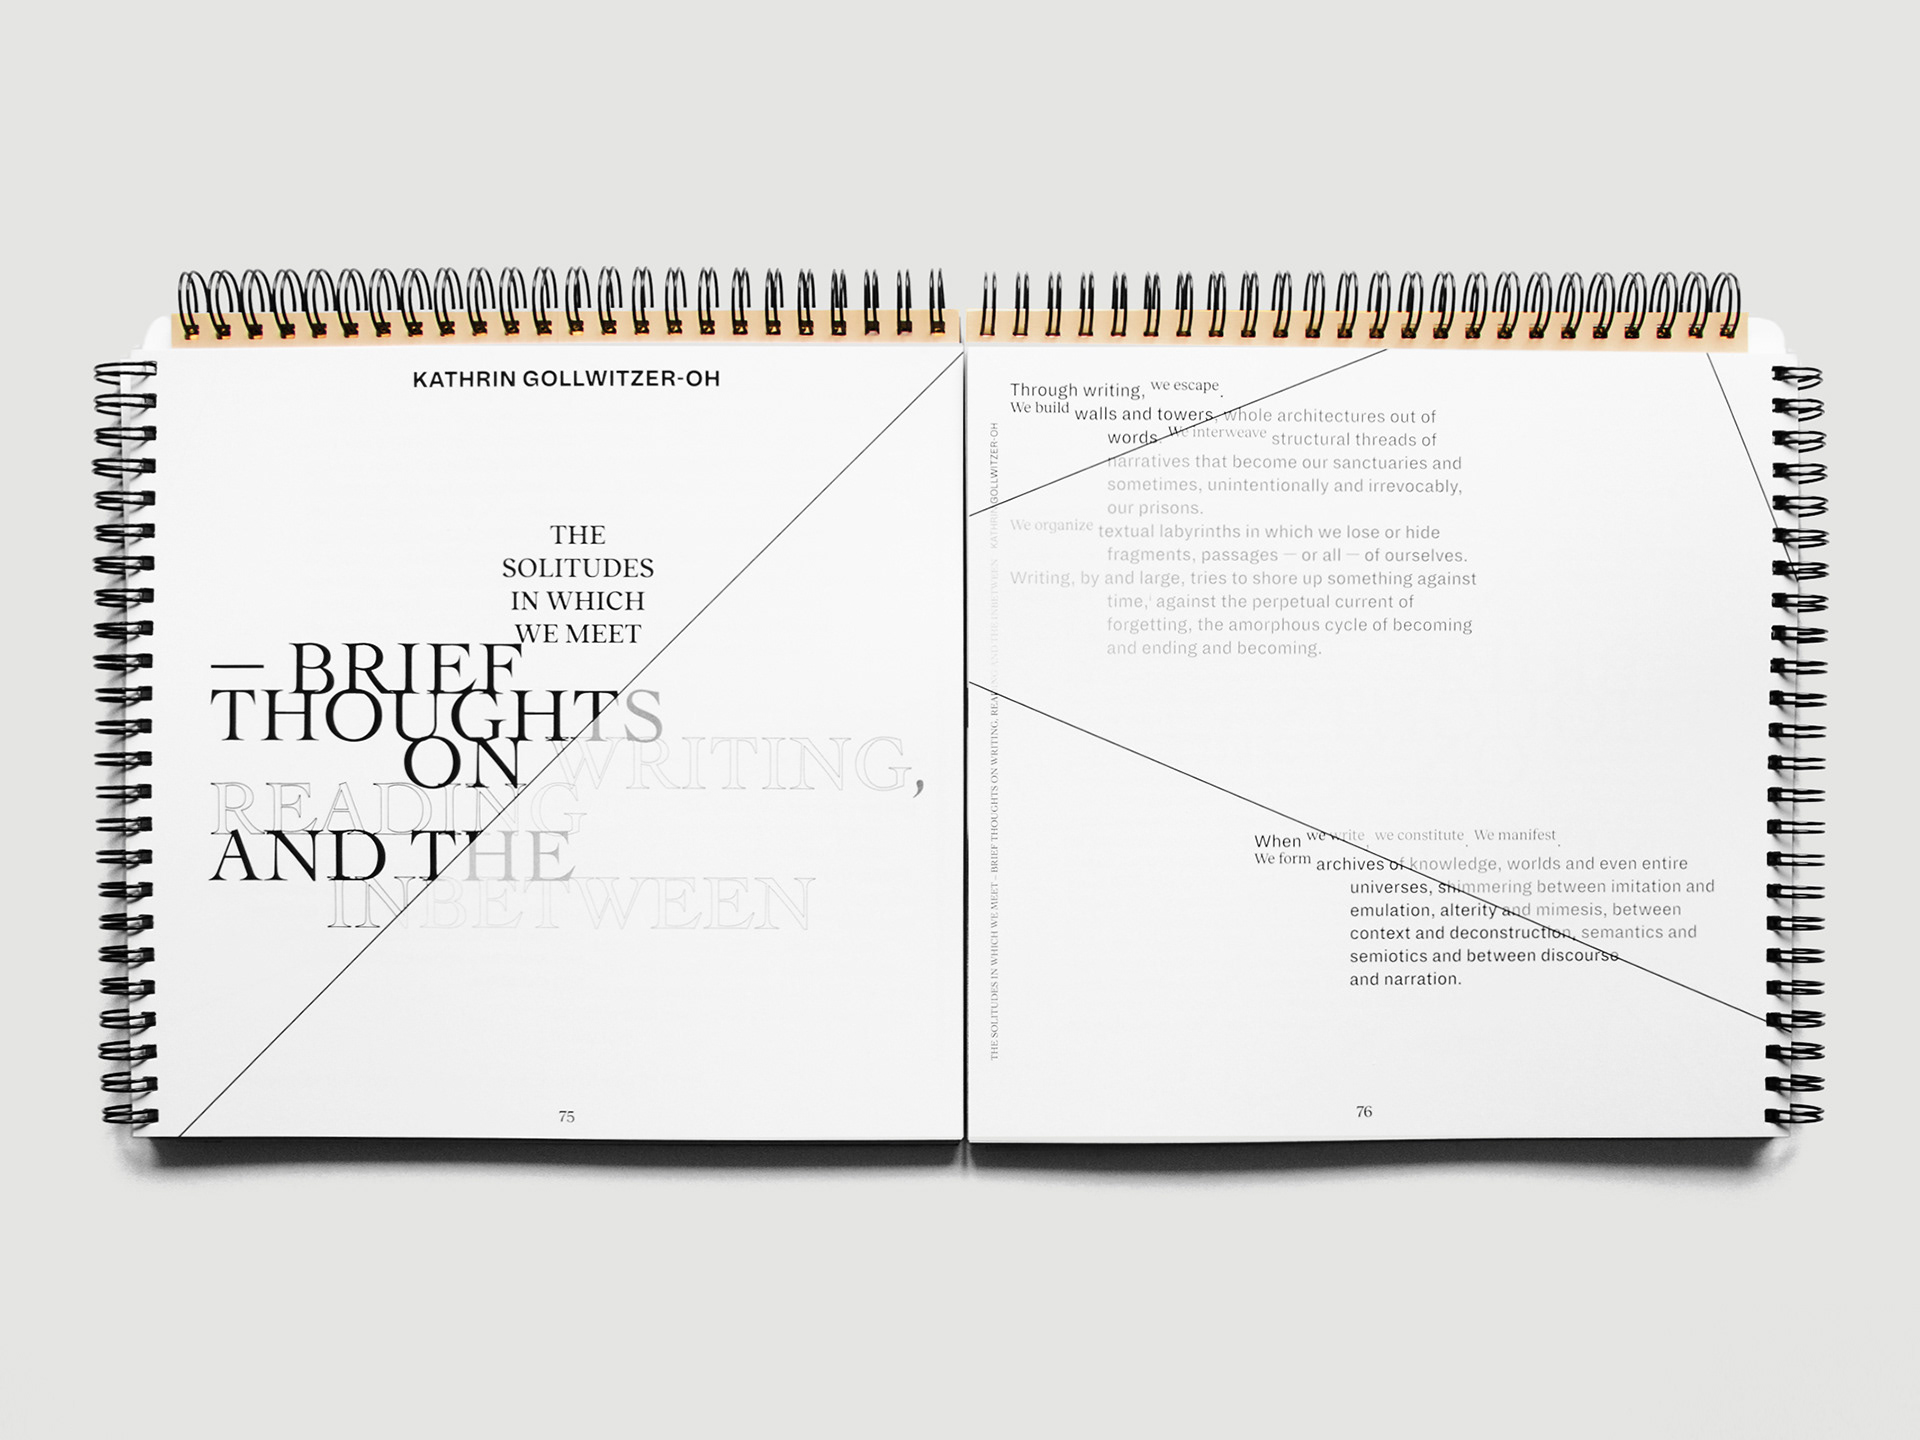 KATHRIN GOLLWITZER-OH
THE
SOLITUDES
IN WHICH
WE MEET
— BRIEF
THOUGHTS
ON WRITING,
READING
AND THE
INBETWEEN
75
THE SOLITUDES IN WHICH WE MEET – BRIEF THOUGHTS ON WRITING, READING AND THE INBETWEEN KATHRIN GOLLWITZER-OH
Through writing, we escape.
We build walls and towers, whole architectures out of
words. We interweave structural threads of
narratives that become our sanctuaries and
sometimes, unintentionally and irrevocably,
our prisons.
We organize textual labyrinths in which we lose or hide
fragments, passages — or all — of ourselves.
Writing, by and large, tries to shore up something against
time,¹ against the perpetual current of
forgetting, the amorphous cycle of becoming
and ending and becoming.
When we write, we constitute. We manifest.
We form archives of knowledge, worlds and even entire
universes, shimmering between imitation and
emulation, alterity and mimesis, between
context and deconstruction, semantics and
semiotics and between discourse
and narration.
76